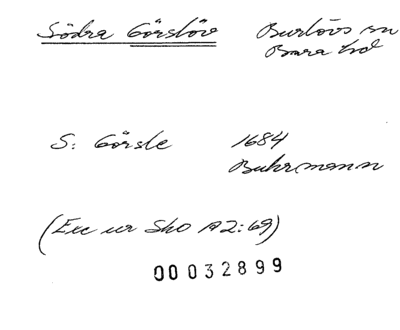 Södra Görslöv Burlövs sn
Bara hd
S: Görsle 1684
Buhrmann
(Exc ur Sko A2:69)
00 032899